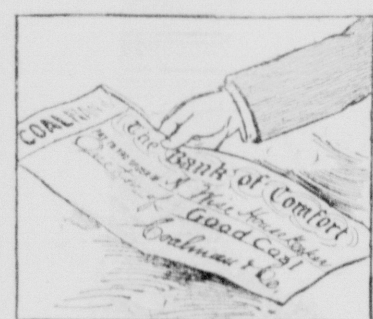 COAL
The Bank of Comfort
PAY TO THE ORDER OF Wise Householder
Good Coal
Coalman & Co.